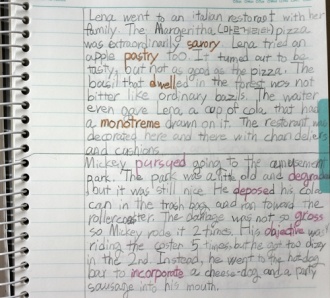 Lena went to an italian restorast with her
family. The Margerita (are seen) pizza
was extraordinarily savory. Lena tried an
apple pastry too. It turned out to be
tasty, but not as good as the pizza. The
bousil that dwelled in the forest was not
bitter like ordinary bazils. The waiter
even gave Lena a cup of cola that had
a monotreme drawn on it. The restorant was
decorated here and there with chandeliers
and cushions.
Mickey pursued going to the amusement
park. The park was a little old and degraded
but it was still nice. He deposed his cola
can in the trash back and ran toward the
rollercoaster. The damage was not so gross
so Mickey rode it 2 times. His objective was
riding the coster 5 times but he got too dizzy
in the 2nd. Instead, he went to the hotdog
bar to incorporate a cheese-dog and a party
sausage into his mouth.